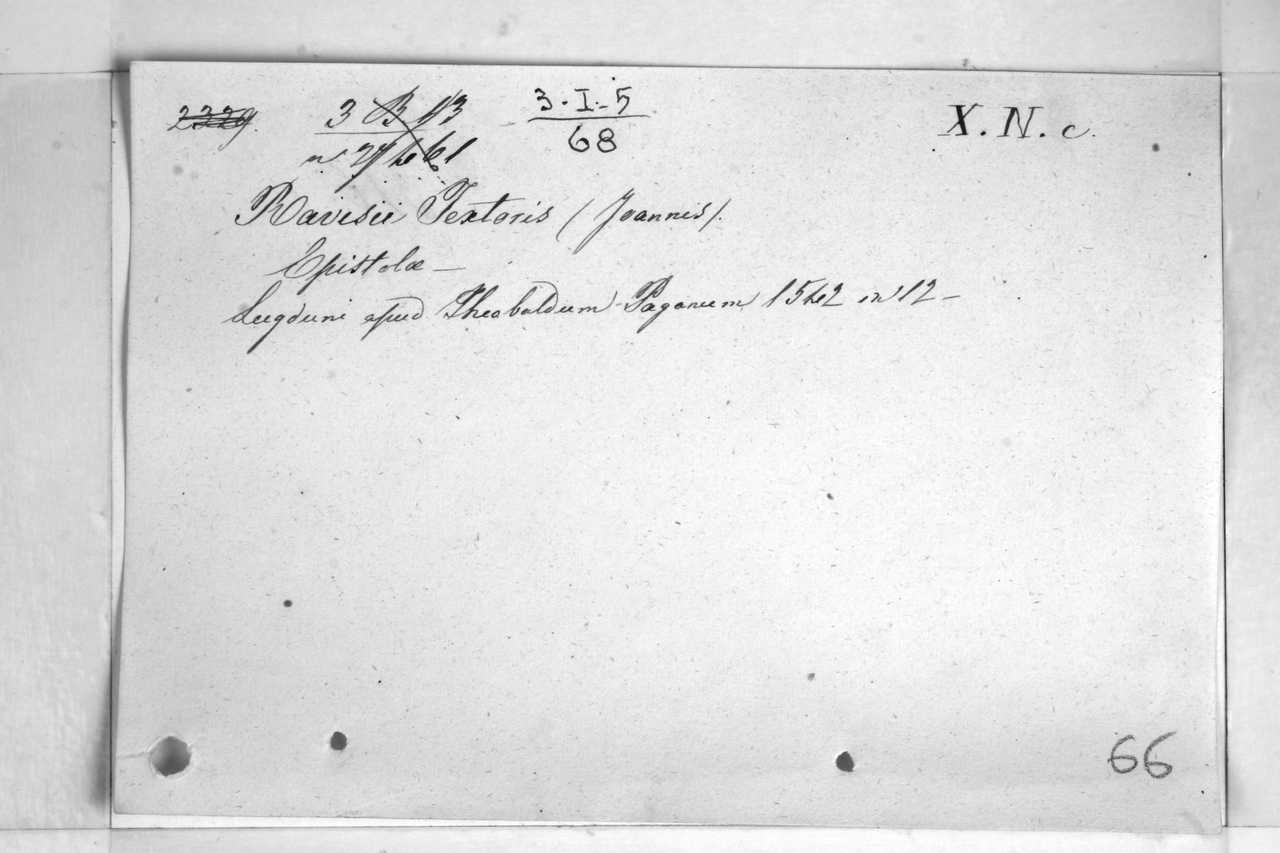 2329.
3 B 13
3.I.-5
68
X. N. c.
Ravisii Textoris (Joannis).
Epistolæ —
Lugduni apud Theobaldum Paganum 1542 in 12 —
66